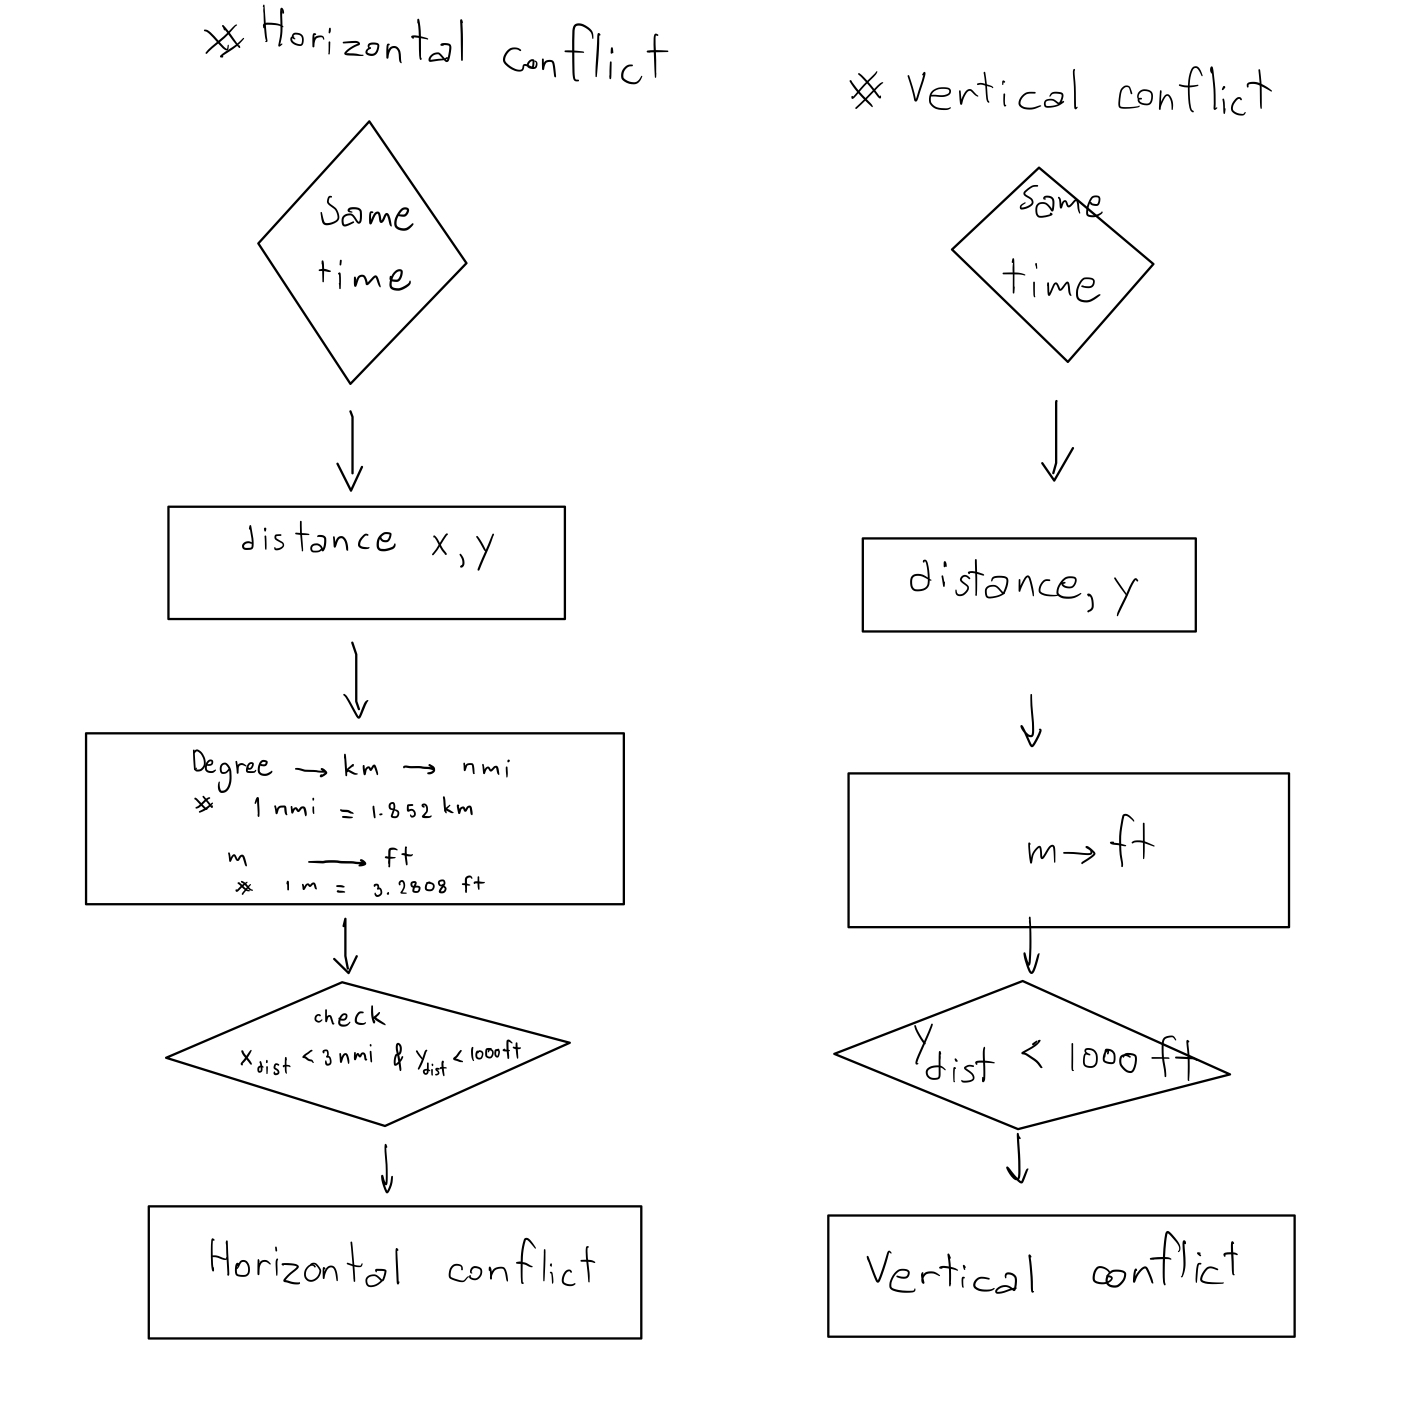 ※ Horizontal conflict
Same
time
distance x, y
Degree → km → nmi
※ 1 nmi = 1.852 km
m → ft
※ 1 m = 3.2808 ft
check
x dist < 3 nmi & y dist < 1000 ft
Horizontal conflict
※ Vertical conflict
same
time
distance, y
m → ft
y dist < 1000 ft
Vertical conflict